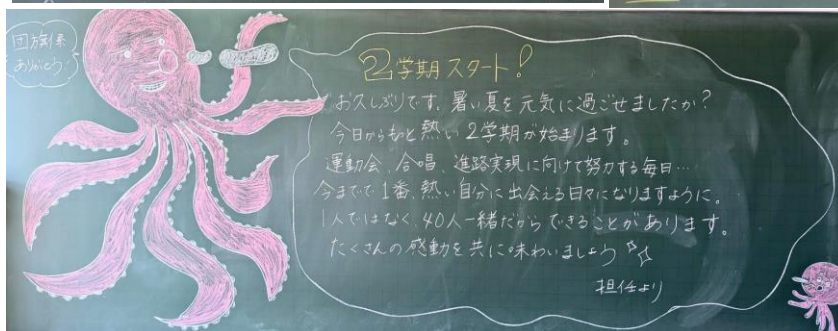 団旗係
ありがとう
2学期スタート!
お久しぶりです。暑い夏を元気に過ごせましたか?
今日からもっと熱い2学期が始まります。
運動会、合唱、進路実現に向けて努力する毎日…
今までで1番、熱い自分に出会える日々になりますように。
1人ではなく、40人一緒だからできることがあります。
たくさんの感動を共に味わいましょう
担任より